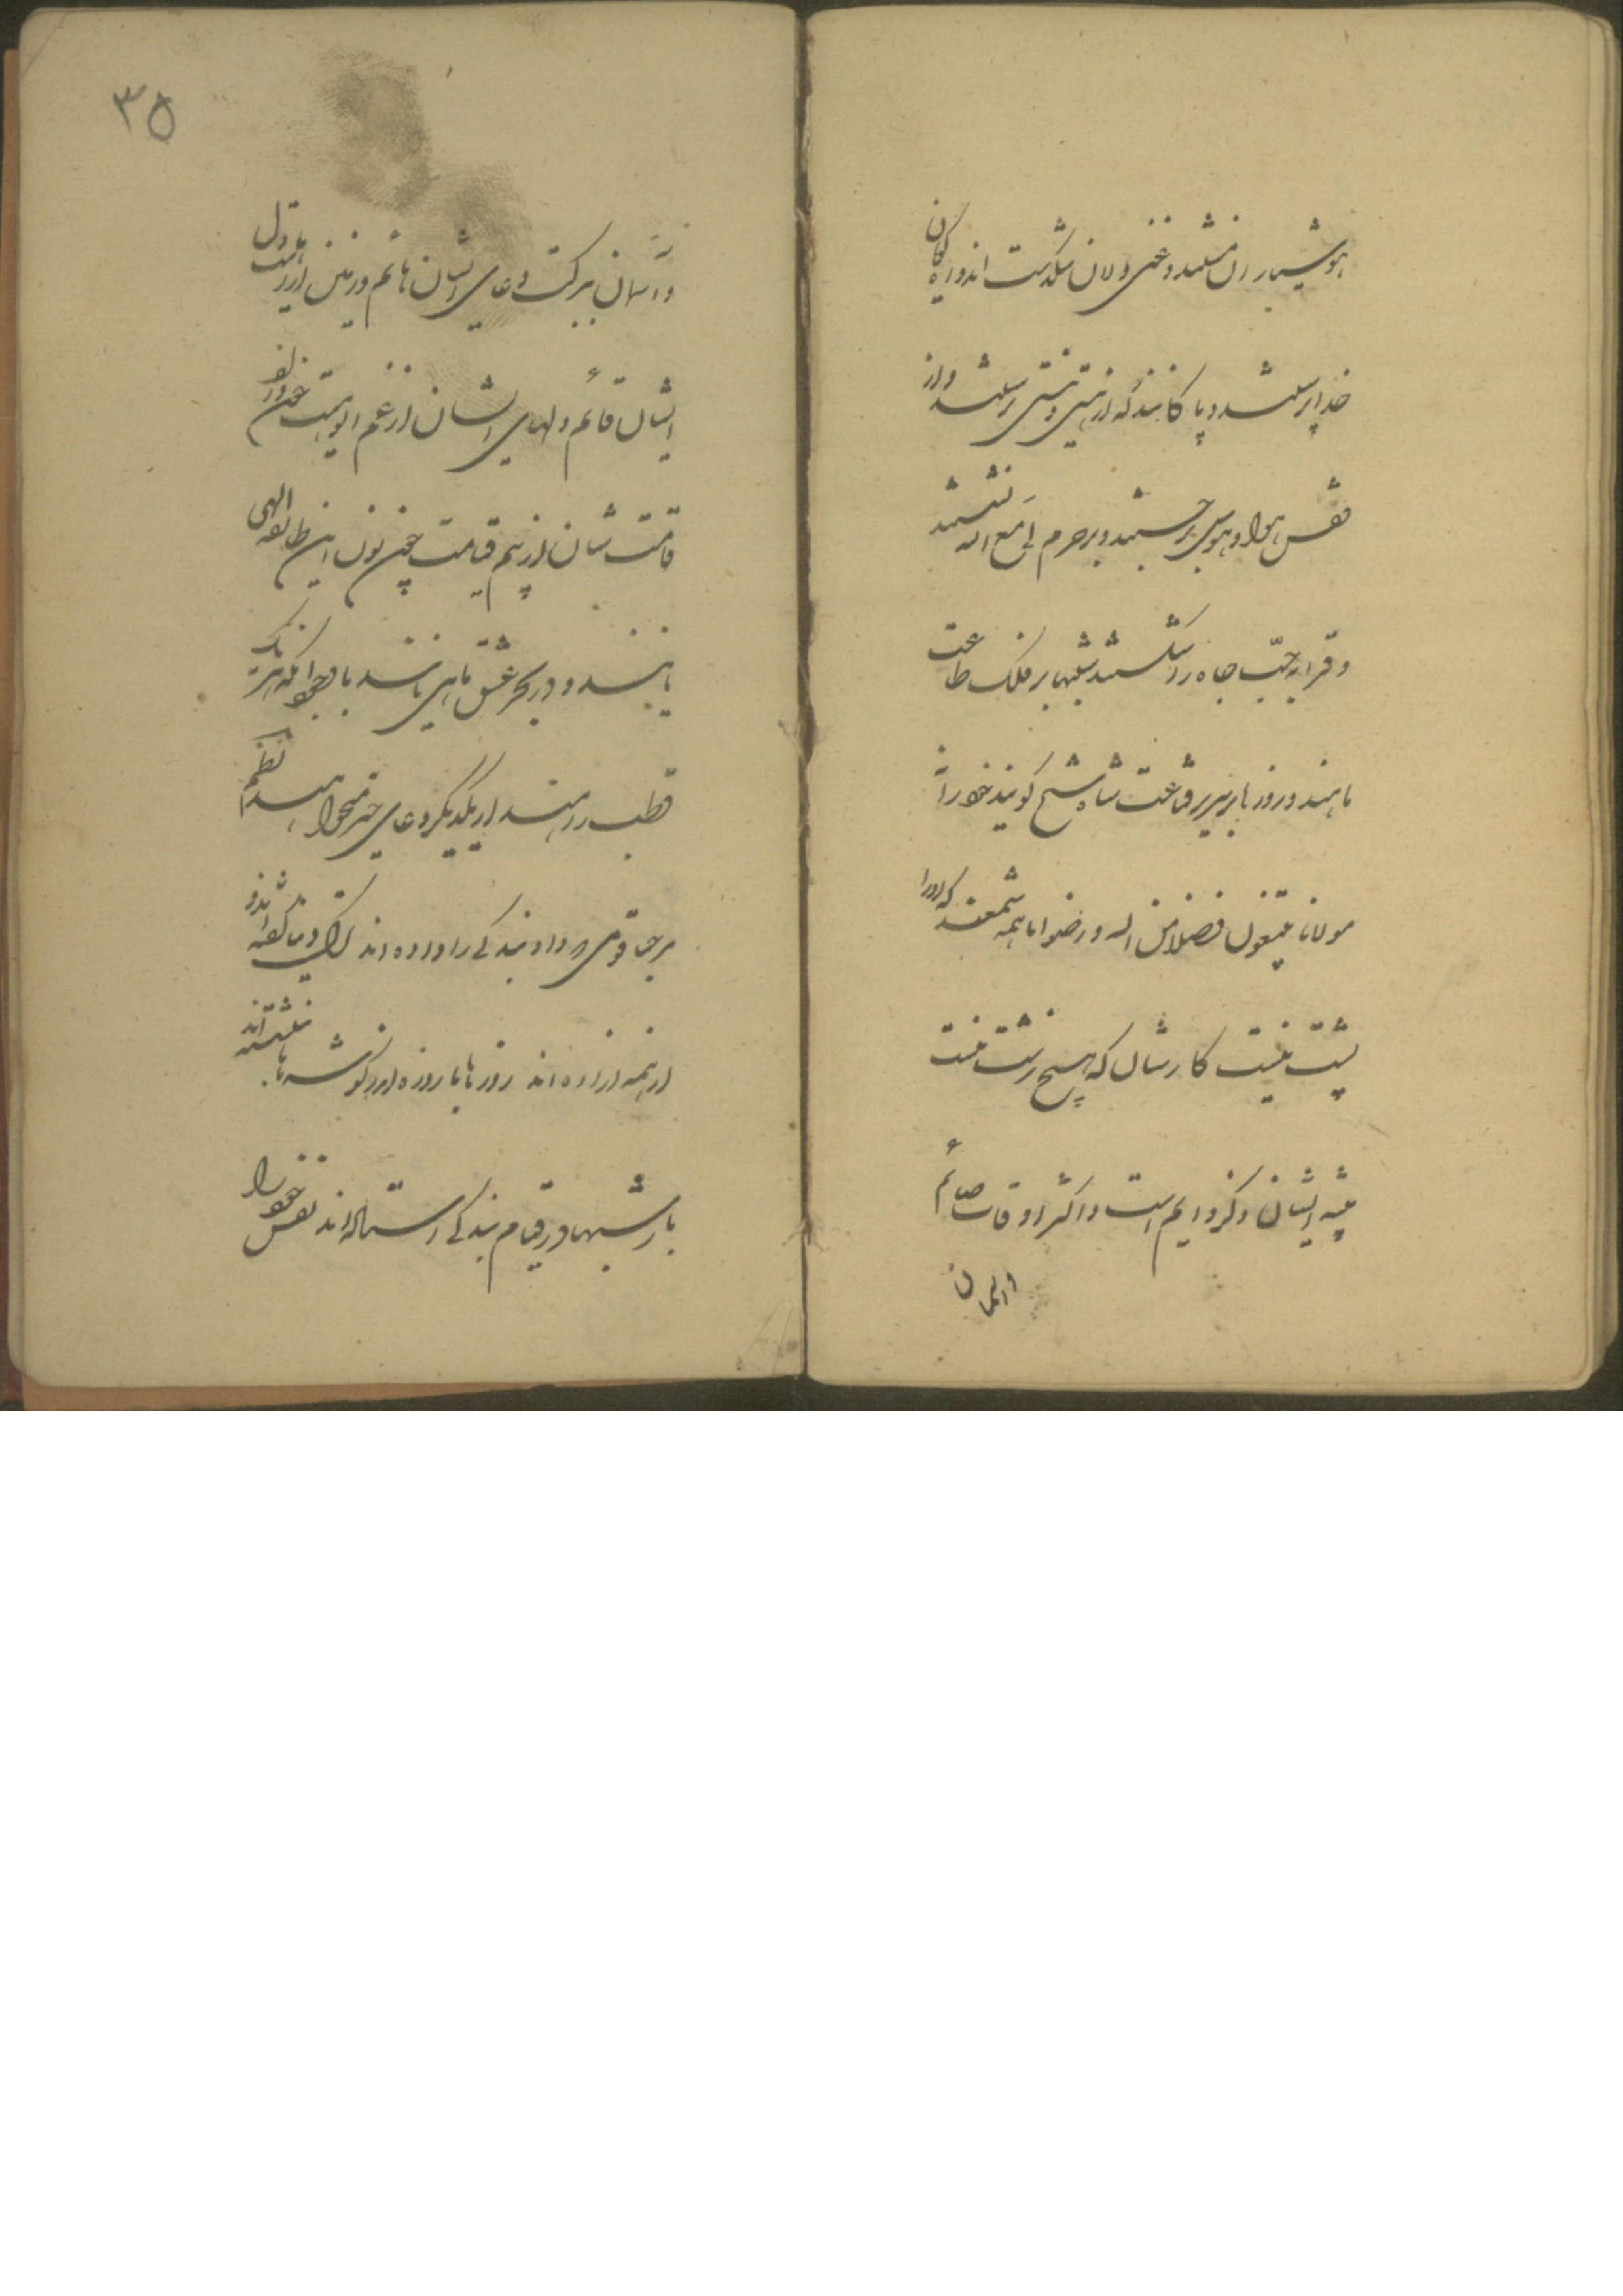 هوشیاران مستند و غنی دلان تنکدست اند و ایه کمان
خدا پرستند و پاکانند که از نیستی و هستی رستند و از
قفس هوا و هوس برجستند و بر حرم لی مع الله نشستند
و قرابه حب جاه را شکستند شبها بر فلک طاعت
ماهند و روزها بر سریر قناعت شاه شبیخ کویند خود را
مولانا یبتغون فضلا من الله و رضوانا همه شمعند که اورا
پشت نیست کارشان که هیچ زشت نیست
پیشه ایشان ذکر دایم است و اکثر اوقات صائم
و اسمان
۳۵
و اسمان ببرکت دعای ایشان قائم و زمین از
ایشان قائم و دلهای ایشان از غم الوهیت خون و از
قامت شان از بیم قیامت چون نون این طایفه الهی
یابند و در بحر عشق ماهی یابند با وجود آنکه هر یک
قطب راهند از یکدیکر دعای خیر میخواهند نظم
مرحبا قومی که داد بندکی را داده اند ترک دنیا کفته اند و
از همه ازاده اند روزها با روزه اندر کوشه ها بنشسته اند
باز شبها در قیام بندکی استاده اند نفس خود را